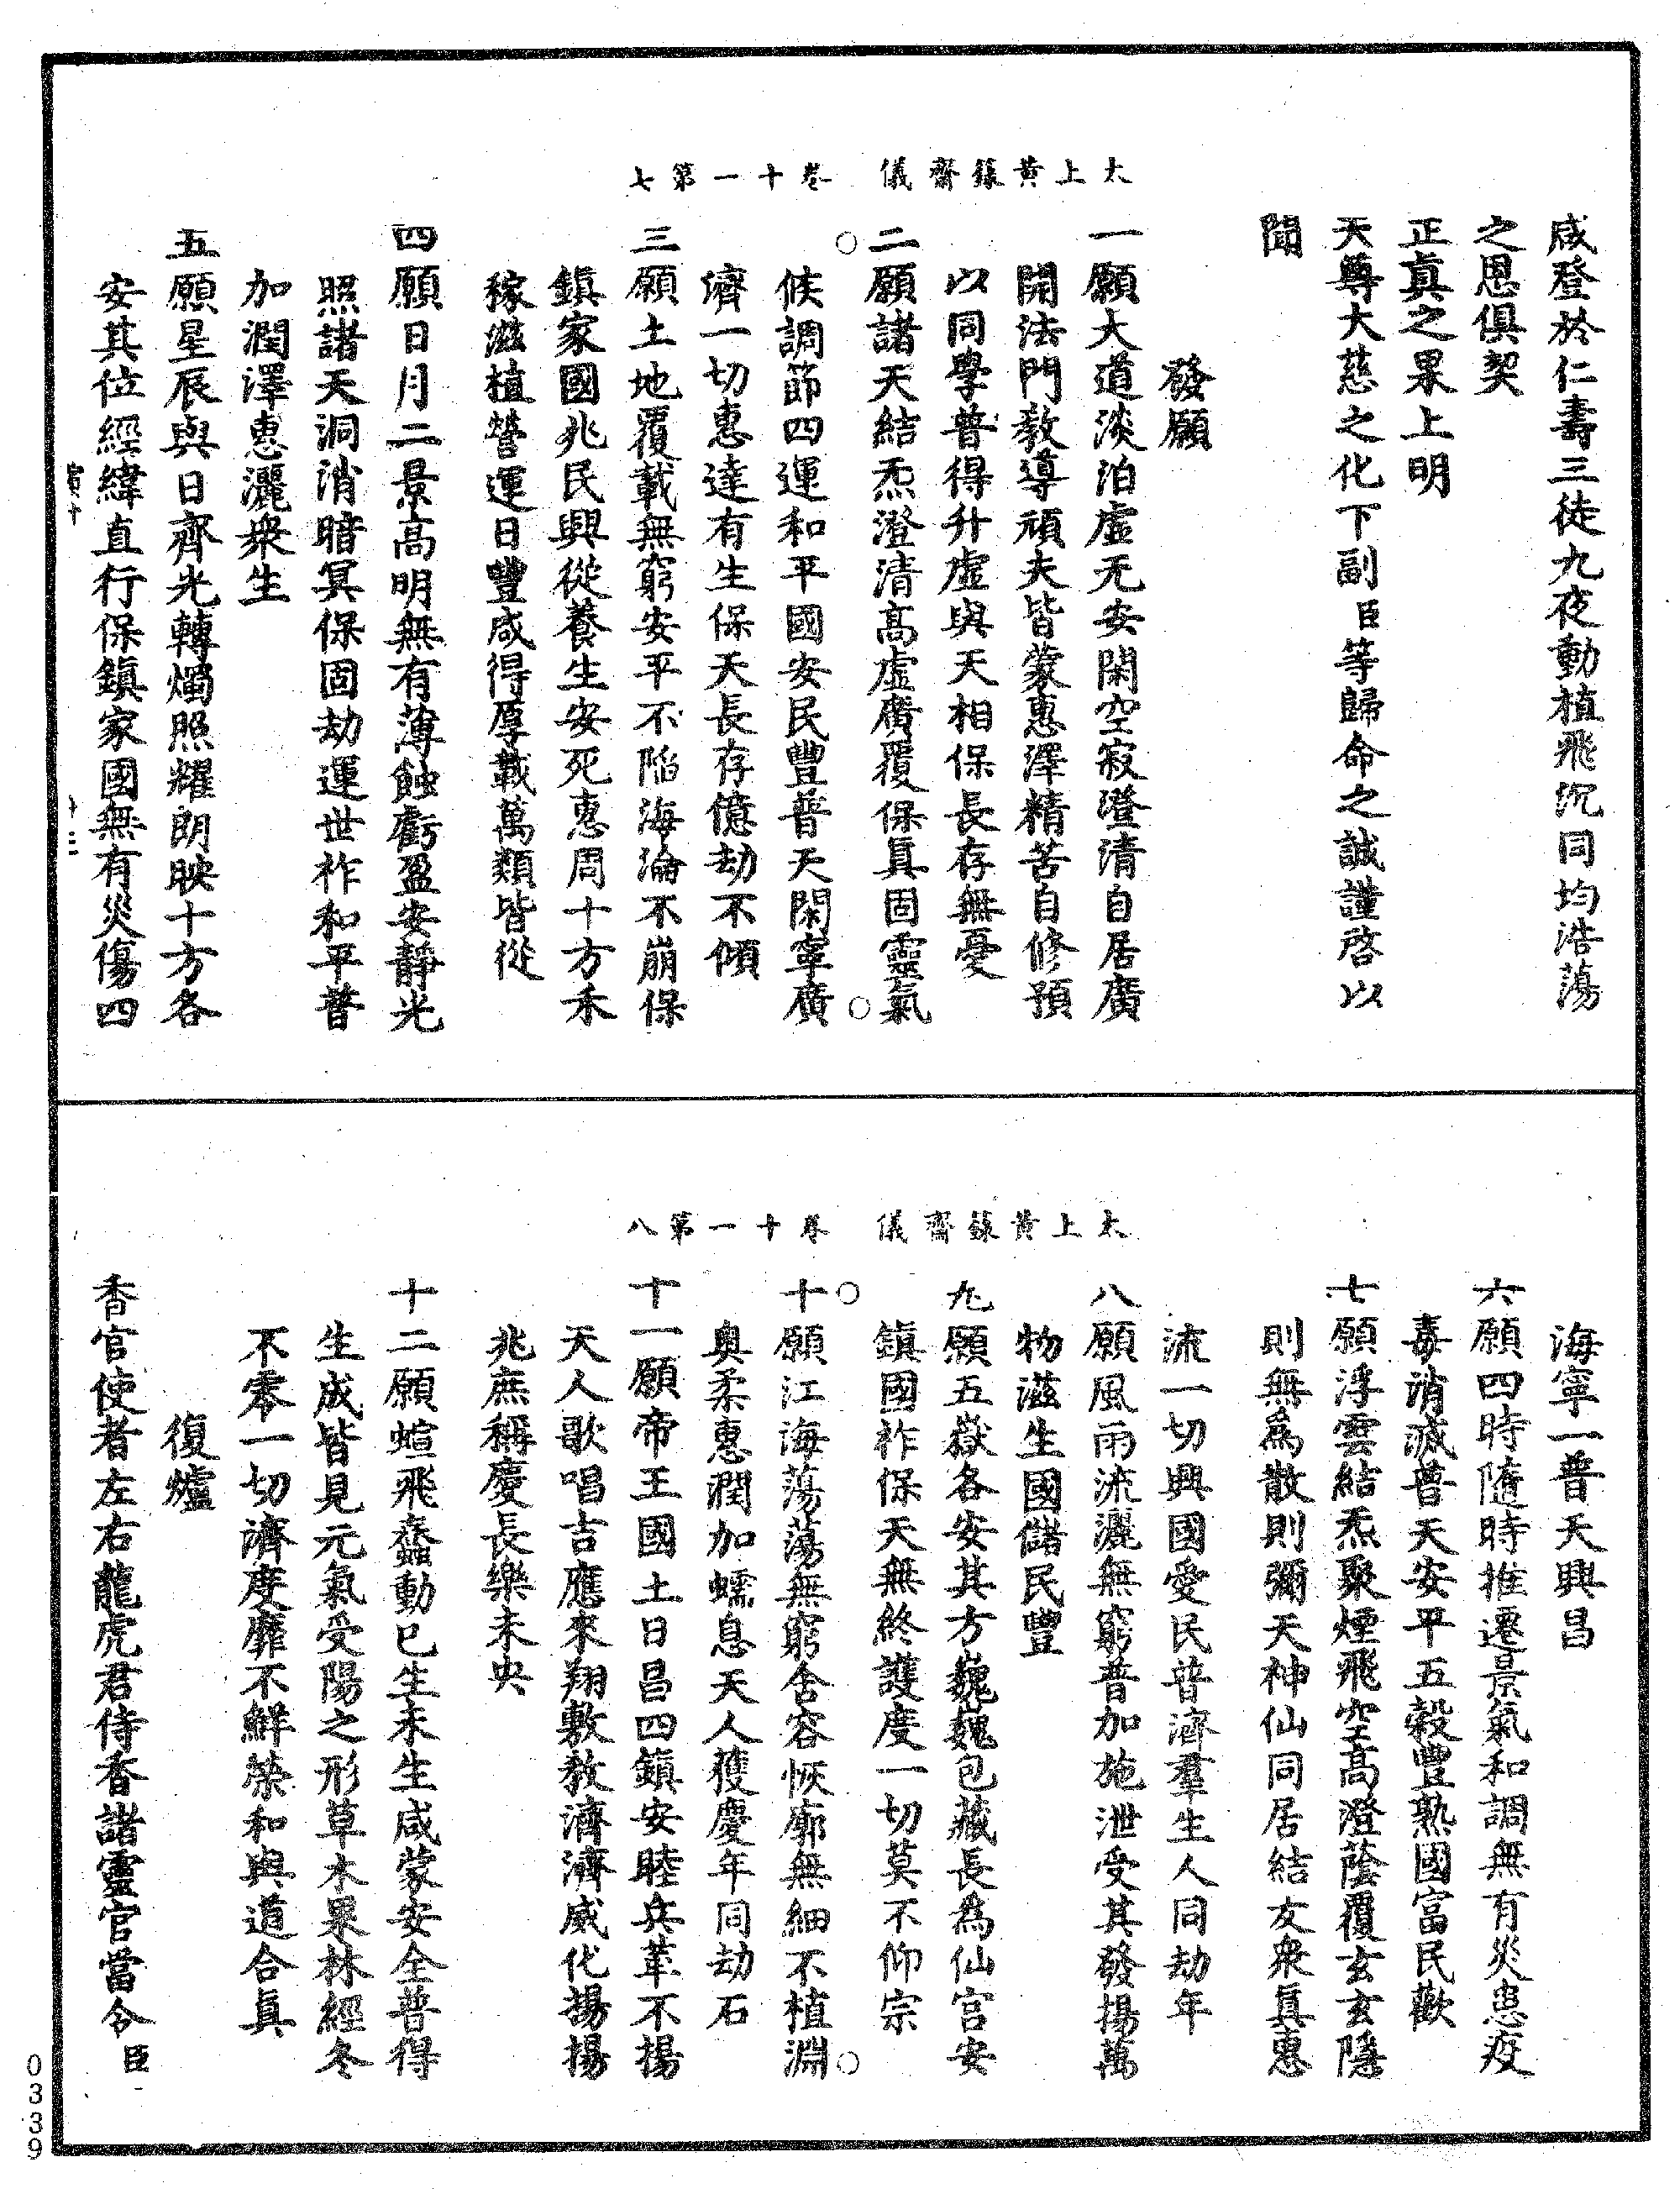 太上黃籙齋儀　卷十一第七
咸登於仁壽三徒九夜動植飛沉同均浩蕩
之恩俱契
正眞之果上明
天尊大慈之化下副臣等歸命之誠謹啓以
聞
發願
一願大道淡泊虛无安閑空寂澄清自居廣
開法門教導頑夫皆蒙惠澤精苦自修預
以同學普得升虛與天相保長存無憂
二願諸天結炁澄清高虛廣覆保眞固靈氣
候調節四運和平國安民豐普天閑寧廣
濟一切惠達有生保天長存億劫不傾
三願土地覆載無窮安平不陷海淪不崩保
鎮家國兆民興從養生安死惠周十方禾
稼滋植營運日豐咸得厚載萬類皆從
四願日月二景高明無有薄蝕虧盈安靜光
照諸天洞消暗冥保固劫運世祚和平普
加潤澤惠灑衆生
五願星辰與日齊光轉燭照耀朗映十方各
安其位經緯直行保鎮家國無有災傷四
太上黃籙齋儀　卷十一第八
海寧一普天興昌
六願四時隨時推遷景氣和調無有災患疫
毒消滅普天安平五穀豐熟國富民歡
七願浮雲結炁聚煙飛空高澄蔭覆玄玄隱
則無爲散則彌天神仙同居結友衆眞惠
流一切興國愛民普濟羣生人同劫年
八願風雨流灑無窮普加施泄受其發揚萬
物滋生國儲民豐
九願五嶽各安其方巍巍包藏長爲仙宮安
鎮國祚保天無終護度一切莫不仰宗
十願江海蕩蕩無窮含容恢廓無細不植淵
奥柔惠潤加蠕息天人獲慶年同劫石
十一願帝王國土日昌四鎮安睦兵革不揚
天人歌唱吉應來翔敷教濟濟威化揚揚
兆庶稱慶長樂未央
十二願蝖飛蠢動已生未生咸蒙安全普得
生成皆見元氣受陽之形草木果林經冬
不零一切濟度靡不鮮榮和與道合眞
復爐
香官使者左右龍虎君侍香諸靈官當令臣
0339